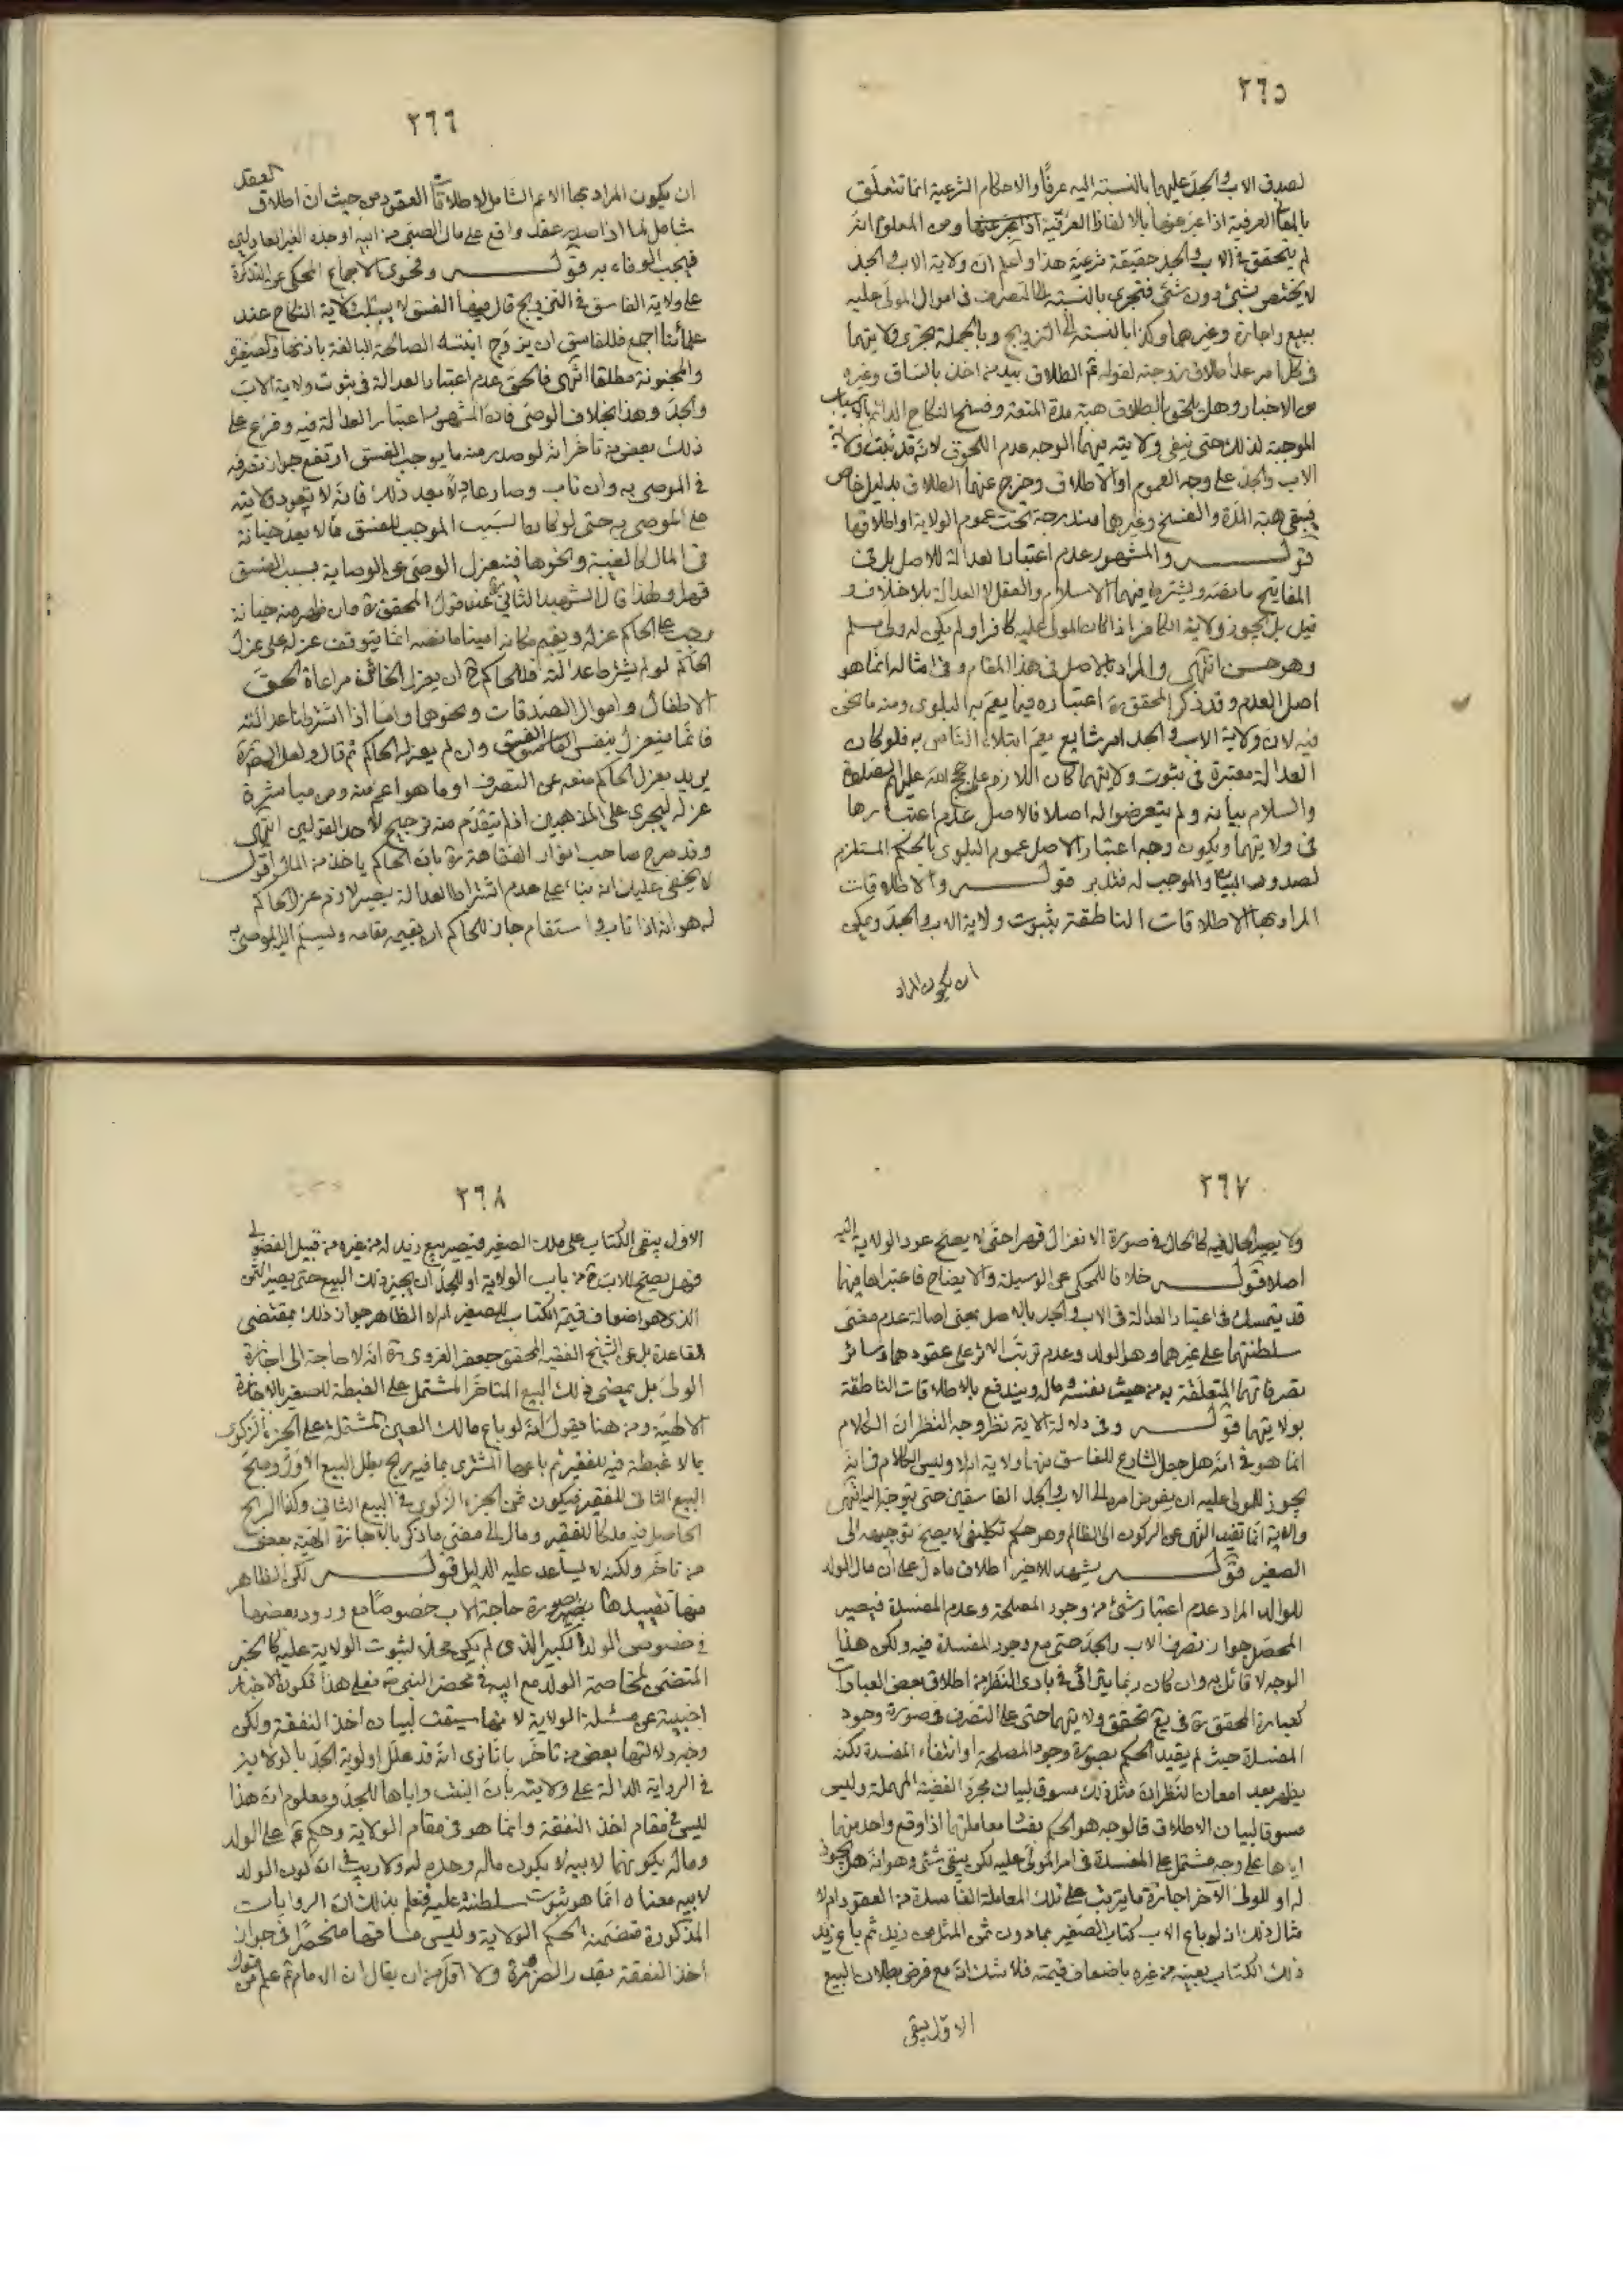 ٣٦٥
لصدق الاب والجد عليهما بالنسبة اليه عرفًا والاحكام الشرعية انما تتعلق
بالمعاني العرفية اذا عبر عنها بالالفاظ العرفية ومن المعلوم انه
لم يتحقق في الاب والجد حقيقة شرعية هذا واعلم ان ولاية الاب والجد
لا يختص بشئ دون شئ فتجري بالنسبة الى التصرف في اموال المولى عليه
ببيع واجارة وغيرهما وكذا بالنسبة الى التزويج وبالجملة تجري ولايتهما
في كل امر عدا طلاق زوجته لقوله ع الطلاق بيد من اخذ بالساق وغيره
من الاخبار وهل يلحق بالطلاق هبة مدة المتعة وفسخ النكاح الدائم بالاسباب
الموجبة لذلك حتى ينفي ولايته فيهما الوجه عدم اللحوق لانه قد ثبت ولاية
الاب والجد على وجه العموم او الاطلاق وخرج عنهما الطلاق بدليل خاص
فيبقى هبة المدة والفسخ وغيرهما مندرجة تحت عموم الولاية او اطلاقها
قوله والمشهور عدم اعتبار العدالة للاصل بل في
المفاتيح ما نصه ويشترط فيهما الاسلام والعقل لا العدالة بلا خلاف و
قيل بل يجوز ولاية الكافر اذا كان المولى عليه كافرا ولم يكن له ولي مسلم
وهو حسن انتهى والمراد بالاصل في هذا المقام وفي امثاله انما هو
اصل العدم وقد ذكر المحقق ره اعتباره فيما يعم به البلوى ومنه ما نحن
فيه لان ولاية الاب والجد امر شايع يعم ابتلاء الناس به فلو كان
العدالة معتبرة في ثبوت ولايتهما كان اللازم على حجج الله عليهم الصلوة
والسلام بيانه ولم يتعرضوا له اصلا فالاصل عدم اعتبارها
في ولايتهما ويكون وجه اعتبار الاصل عموم البلوى بالحكم المستلزم
لصدور البيان والموجب له فتدبر قوله والاطلاقات
المراد بها الاطلاقات الناطقة بثبوت ولاية الاب والجد ويمكن
ان يكون المراد
٣٦٦
ان يكون المراد بها الاعم الشامل لاطلاقات العقود من حيث ان اطلاق العقد
شامل لما اذا صدر عقد واقع على مال الصبي من ابيه او جده الغير العادلين
فيجب الوفاء به قوله وفحوى الاجماع المحكي عن التذكرة
على ولاية الفاسق في التزويج قال فيها الفسق لا يسلب ولاية النكاح عند
علمائنا اجمع فللفاسق ان يزوج ابنته الصالحة البالغة باذنها والصغيرة
والمجنونة مطلقا انتهى فالحق عدم اعتبار العدالة في ثبوت ولاية الاب
والجد وهذا بخلاف الوصي فان المشهور اعتبار العدالة فيه وفرع على
ذلك بعض من تأخر انه لو صدر منه ما يوجب الفسق ارتفع جواز تصرفه
في الموصى به وان تاب وصار عادلا بعد ذلك فانه لا تعود ولايته
على الموصى به حتى لو كان السبب الموجب للفسق مما لا يعد خيانة
في المال كالغيبة ونحوها فينعزل الوصي عن الوصاية بسبب الفسق
قهرا ولهذا قال الشهيد الثاني ره عند قول المحقق ره فان ظهر منه خيانة
وجب على الحاكم عزله ويقيم مكانه امينا ما نصه انما يتوقف عزله على عزل
الحاكم لو لم يشترط عدالته فللحاكم ح ان يعزل الخائن مراعاة لحق
الاطفال واموال الصدقات ونحوها واما اذا اشترطنا عدالته
فانما ينعزل بنفس الفسق وان لم يعزله الحاكم ثم قال ولعل المصنف ره
يريد بعزل الحاكم منعه عن التصرف او ما هو اعم منه ومن مباشرة
عزله ليجري على المذهبين اذ لم يتقدم منه ترجيح لاحد القولين انتهى
وقد صرح صاحب انوار الفقاهة ره بان الحاكم ياخذ منه المال اقول
لا يخفى عليك انه بناء على عدم اشتراط العدالة يصير لازم عزل الحاكم
له هو انه اذا تاب واستقام جاز للحاكم ان يقيمه مقامه ويسلم اليه الموصى به
٣٦٧
ولا يصير الحال فيه كالحال في صورة الانعزال قهرا حتى لا يصح عود الولاية اليه
اصلا قوله خلافا للمحكي عن الوسيلة والايضاح فاعتبراها فيهما
قد يتمسك في اعتبار العدالة في الاب والجد بالاصل بمعنى اصالة عدم مضي
سلطنتهما على غيرهما وهو الولد وعدم ترتب الاثر على عقودهما وسائر
تصرفاتهما المتعلقة به من حيث نفسه وماله ويندفع بالاطلاقات الناطقة
بولايتهما قوله وفي دلالة الاية نظر وجه النظر ان الكلام
انما هو في انه هل جعل الشارع للفاسق منهما ولاية ام لا وليس الكلام في انه
يجوز للمولى عليه ان يفوض امره الى الاب والجد الفاسقين حتى يتوجه اليه النهي
والاية انما تفيد النهي عن الركون الى الظالم وهو حكم تكليفي لا يصح توجيهه الى
الصغير قوله يشهد للاخير اطلاق ما دل على ان مال الولد
للوالد المراد عدم اعتبار شئ من وجود المصلحة وعدم المفسدة فيصير
المحصل جواز تصرف الاب والجد حتى مع وجود المفسدة فيه ولكن هذا
الوجه لا قائل به وان كان ربما يتراءى في بادي النظر من اطلاق بعض العبارات
كعبارة المحقق ره في يع تحقق ولايتهما حتى على التصرف في صورة وجود
المفسدة حيث لم يقيد الحكم بصورة وجود المصلحة او انتفاء المفسدة لكنه
يظهر بعد امعان النظر ان مثل ذلك مسوق لبيان مجرد القضية المهملة وليس
مسوقا لبيان الاطلاق فالوجه هو الحكم بفساد معاملتهما اذا وقع واحد منهما
اياها على وجه مشتمل على المفسدة في امر المولى عليه لكن يبقى شئ وهو انه هل يجوز
له او للولي الآخر اجازة ما يترتب على تلك المعاملة الفاسدة من العقود ام لا
مثال ذلك انه لو باع الاب كتاب الصغير بما دون ثمن المثل من زيد ثم باع زيد
ذلك الكتاب بعينه من غيره باضعاف قيمته فلا شك انه مع فرض بطلان البيع
الاول يبقى
٣٦٨
الاول يبقى الكتاب على ملك الصغير فيصير بيع زيد له من غيره من قبيل الفضولي
فهل يصح للاب ح من باب الولاية او للجد ان يجيز ذلك البيع حتى يصير الثمن
الذي هو اضعاف قيمة الكتاب للصغير ام لا الظاهر جواز ذلك بمقتضى
القاعدة بل عن الشيخ الفقيه المحقق جعفر الغروي ره انه لا حاجة الى اجازة
الولي بل يمضي ذلك البيع المتأخر المشتمل على الغبطة للصغير بالاجازة
الالهية ومن هنا يقول انه لو باع مالك العين المشتملة على الجزء الزكوي
بما لا غبطة فيه للفقير ثم باعها المشتري بما فيه ربح بطل البيع الاول وصح
البيع الثاني للفقير فيكون ثمن الجزء الزكوي في البيع الثاني وكذا الربح
الحاصل فيه ملكا للفقير ومال الى مضي ما ذكر بالاجازة الالهية بعض
من تأخر ولكنه لا يساعد عليه الدليل قوله لكن الظاهر
منها تقييدها بصورة حاجة الاب خصوصًا مع ورود بعضها
في خصوص الولد الكبير الذي لم يكن محلا لثبوت الولاية عليه كالخبر
المتضمن لمخاصمة الولد مع ابيه في محضر النبي ص فعلى هذا تكون الاخبار
اجنبية عن مسئلة الولاية لانها سيقت لبيان اخذ النفقة ولكن
وجه دلالتها بعض من تأخر بانا نرى انه قد علل اولوية الجد بالولاية
في الرواية الدالة على ولايته بان البنت واباها للجد ومعلوم ان هذا
ليس في مقام اخذ النفقة وانما هو في مقام الولاية وحكم ع على الولد
وماله بكونهما لابيه لا بكون ماله وحده له ولا ريب في ان كون الولد
لابيه معناه انما هو ثبوت سلطنته عليه فنعلم بذلك ان الروايات
المذكورة متضمنة لحكم الولاية وليس مساقها منحصرًا في جواز
اخذ النفقة بقدر الضرورة ولا اقل من ان يقال ان الامام ع علم من قول